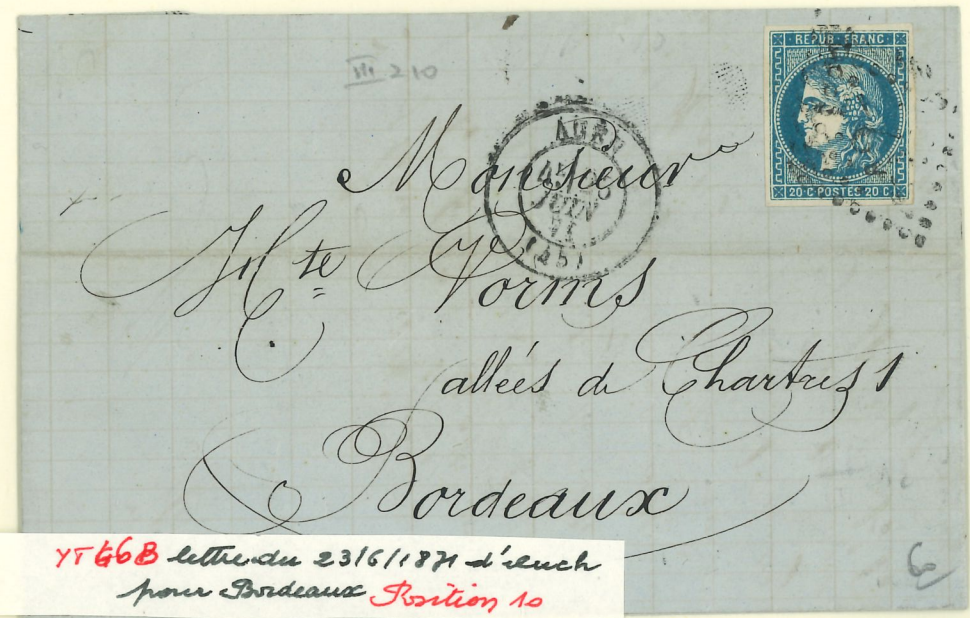 III 210
REPUB · FRANC
20 C · POSTES 20 C
AUCH
JUIN
71
Monsieur
Vorms
allées de Chartres 1
Bordeaux
YT 46B lettre du 23/6/1871 d'Auch
pour Bordeaux Position 10